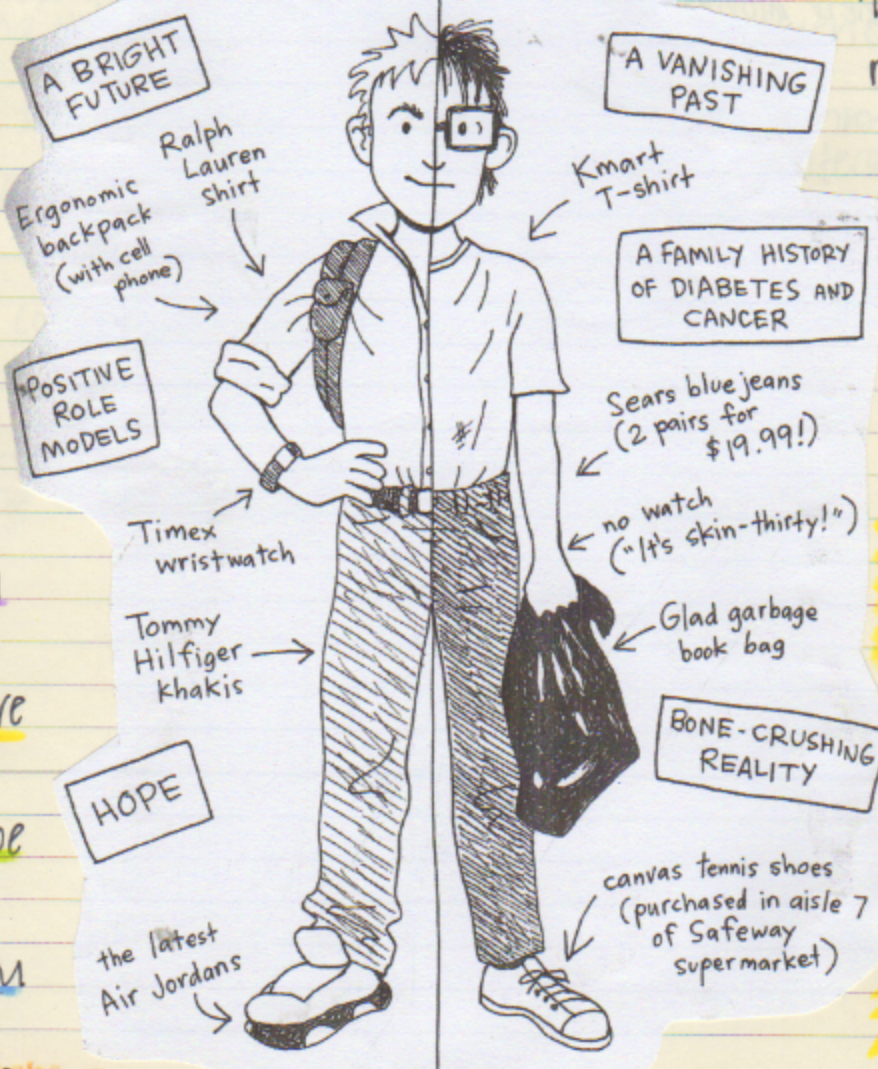 A BRIGHT
FUTURE
Ralph
Lauren
shirt
Ergonomic
backpack
(with cell
phone)
POSITIVE
ROLE
MODELS
Timex
wristwatch
Tommy
Hilfiger
khakis
HOPE
the latest
Air Jordans
A VANISHING
PAST
Kmart
T-shirt
A FAMILY HISTORY
OF DIABETES AND
CANCER
Sears blue jeans
(2 pairs for
$19.99!)
no watch
("It's skin-thirty!")
Glad garbage
book bag
BONE-CRUSHING
REALITY
canvas tennis shoes
(purchased in aisle 7
of Safeway
supermarket)